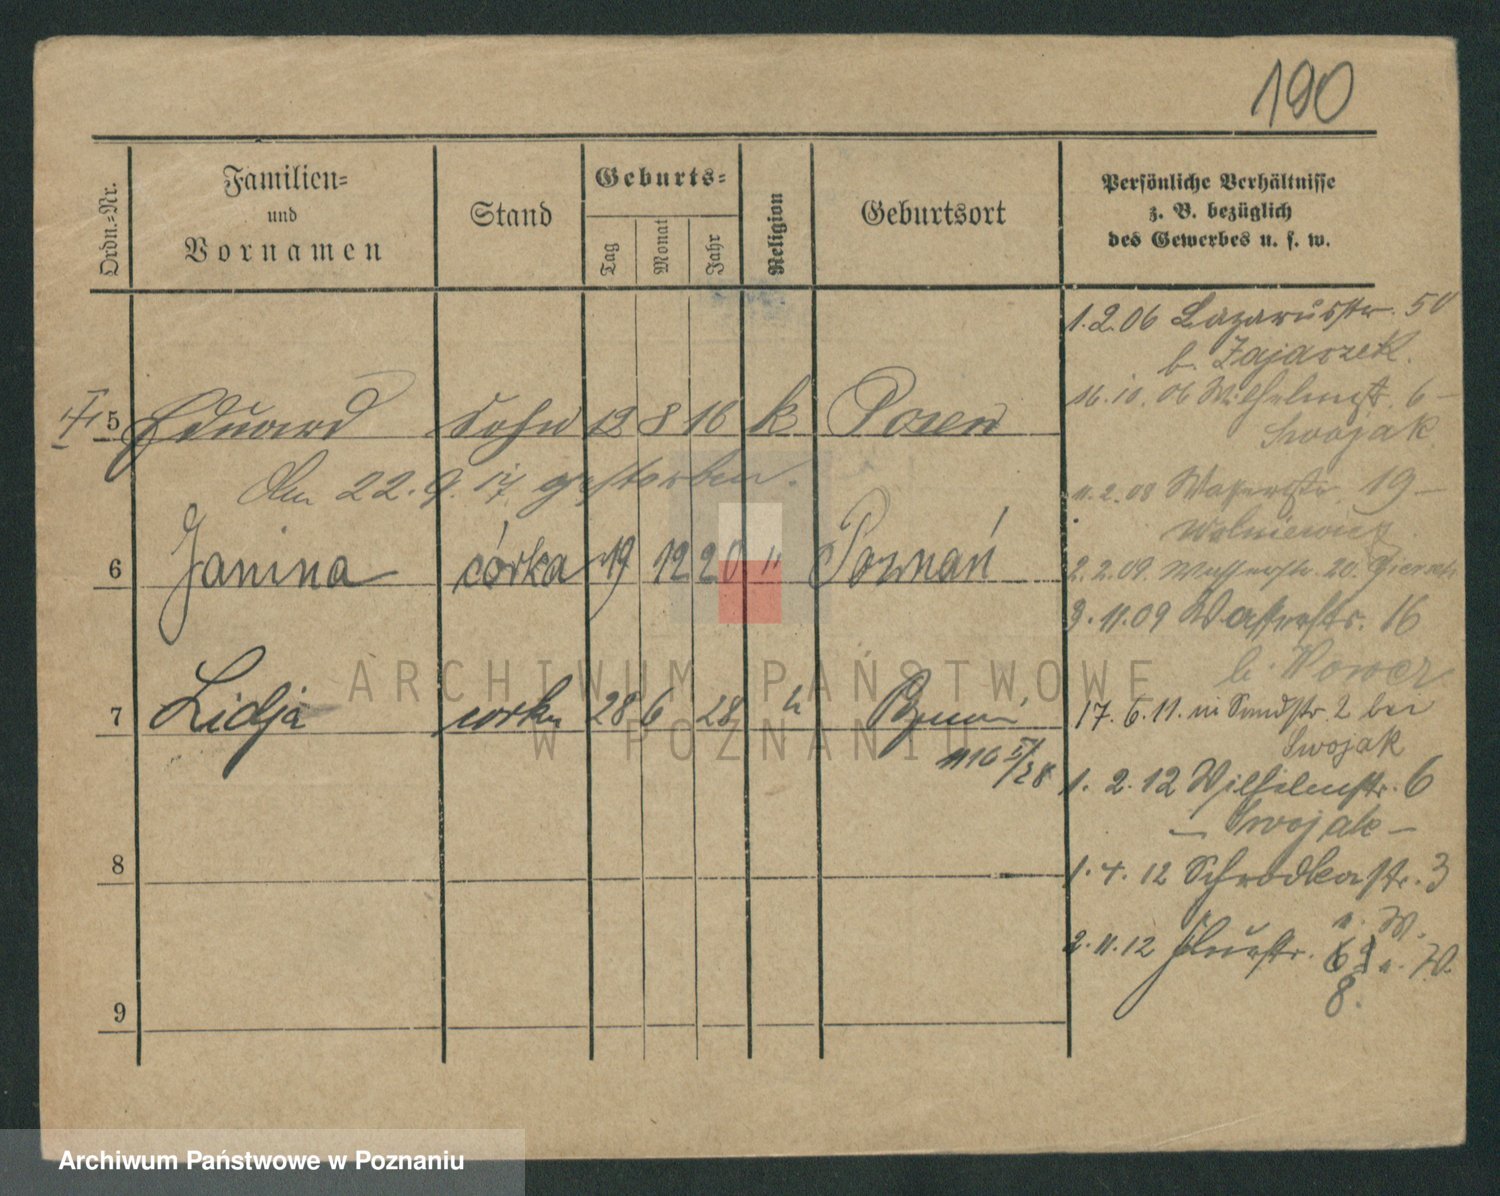 190
Ordn.=Nr.
Familien=
und
Vornamen
Stand
Geburts=
Tag
Monat
Jahr
Religion
Geburtsort
Persönliche Verhältnisse
z. B. bezüglich
des Gewerbes u. s. w.
5 Eduard Sohn 12 8 16 k Posen
den 22. 9. 17 gestorben.
6 Janina córka 19 12 20 " Poznań
7 Lidja córka 28 6 28 " Poznań
8
9
1.2.06 Lazarusstr. 50
b. Zajaszek.
16.10.06 Wilhelmst. 6 -
Swojak
11.2.08 Wasserstr. 19 -
Wolniewicz
2.2.09. Wasserstr. 20.
3.11.09 Wasserstr. 16
b.
17.6.11. in Sandstr. 2 bei
Swojak
1. 2. 12 Wilhelmstr. 6
- Swojak -
1. 4. 12 Schrodkastr. 3
2. 11. 12
8.
ARCHIWUM PAŃSTWOWE
W POZNANIU
Archiwum Państwowe w Poznaniu